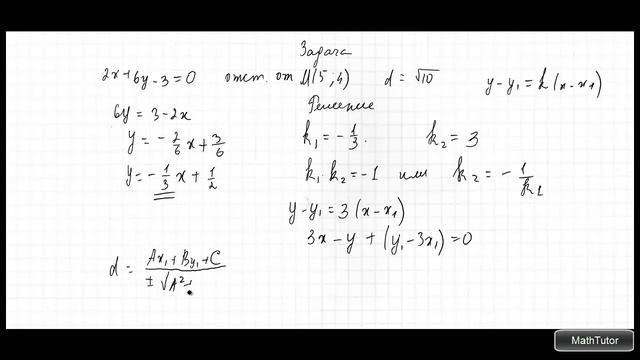 Задача
2x+6y-3=0 отст. от M(5;4) d=√10 y-y₁=k(x-x₁)
Решение
6y=3-2x
y=-2/6x+3/6
y=-1/3x+1/2
k₁=-1/3. k₂=3
k₁·k₂=-1 или k₂=-1/k₁
y-y₁=3(x-x₁)
3x-y+(y₁-3x₁)=0
d=Ax₁+By₁+C/±√A²+
MathTutor